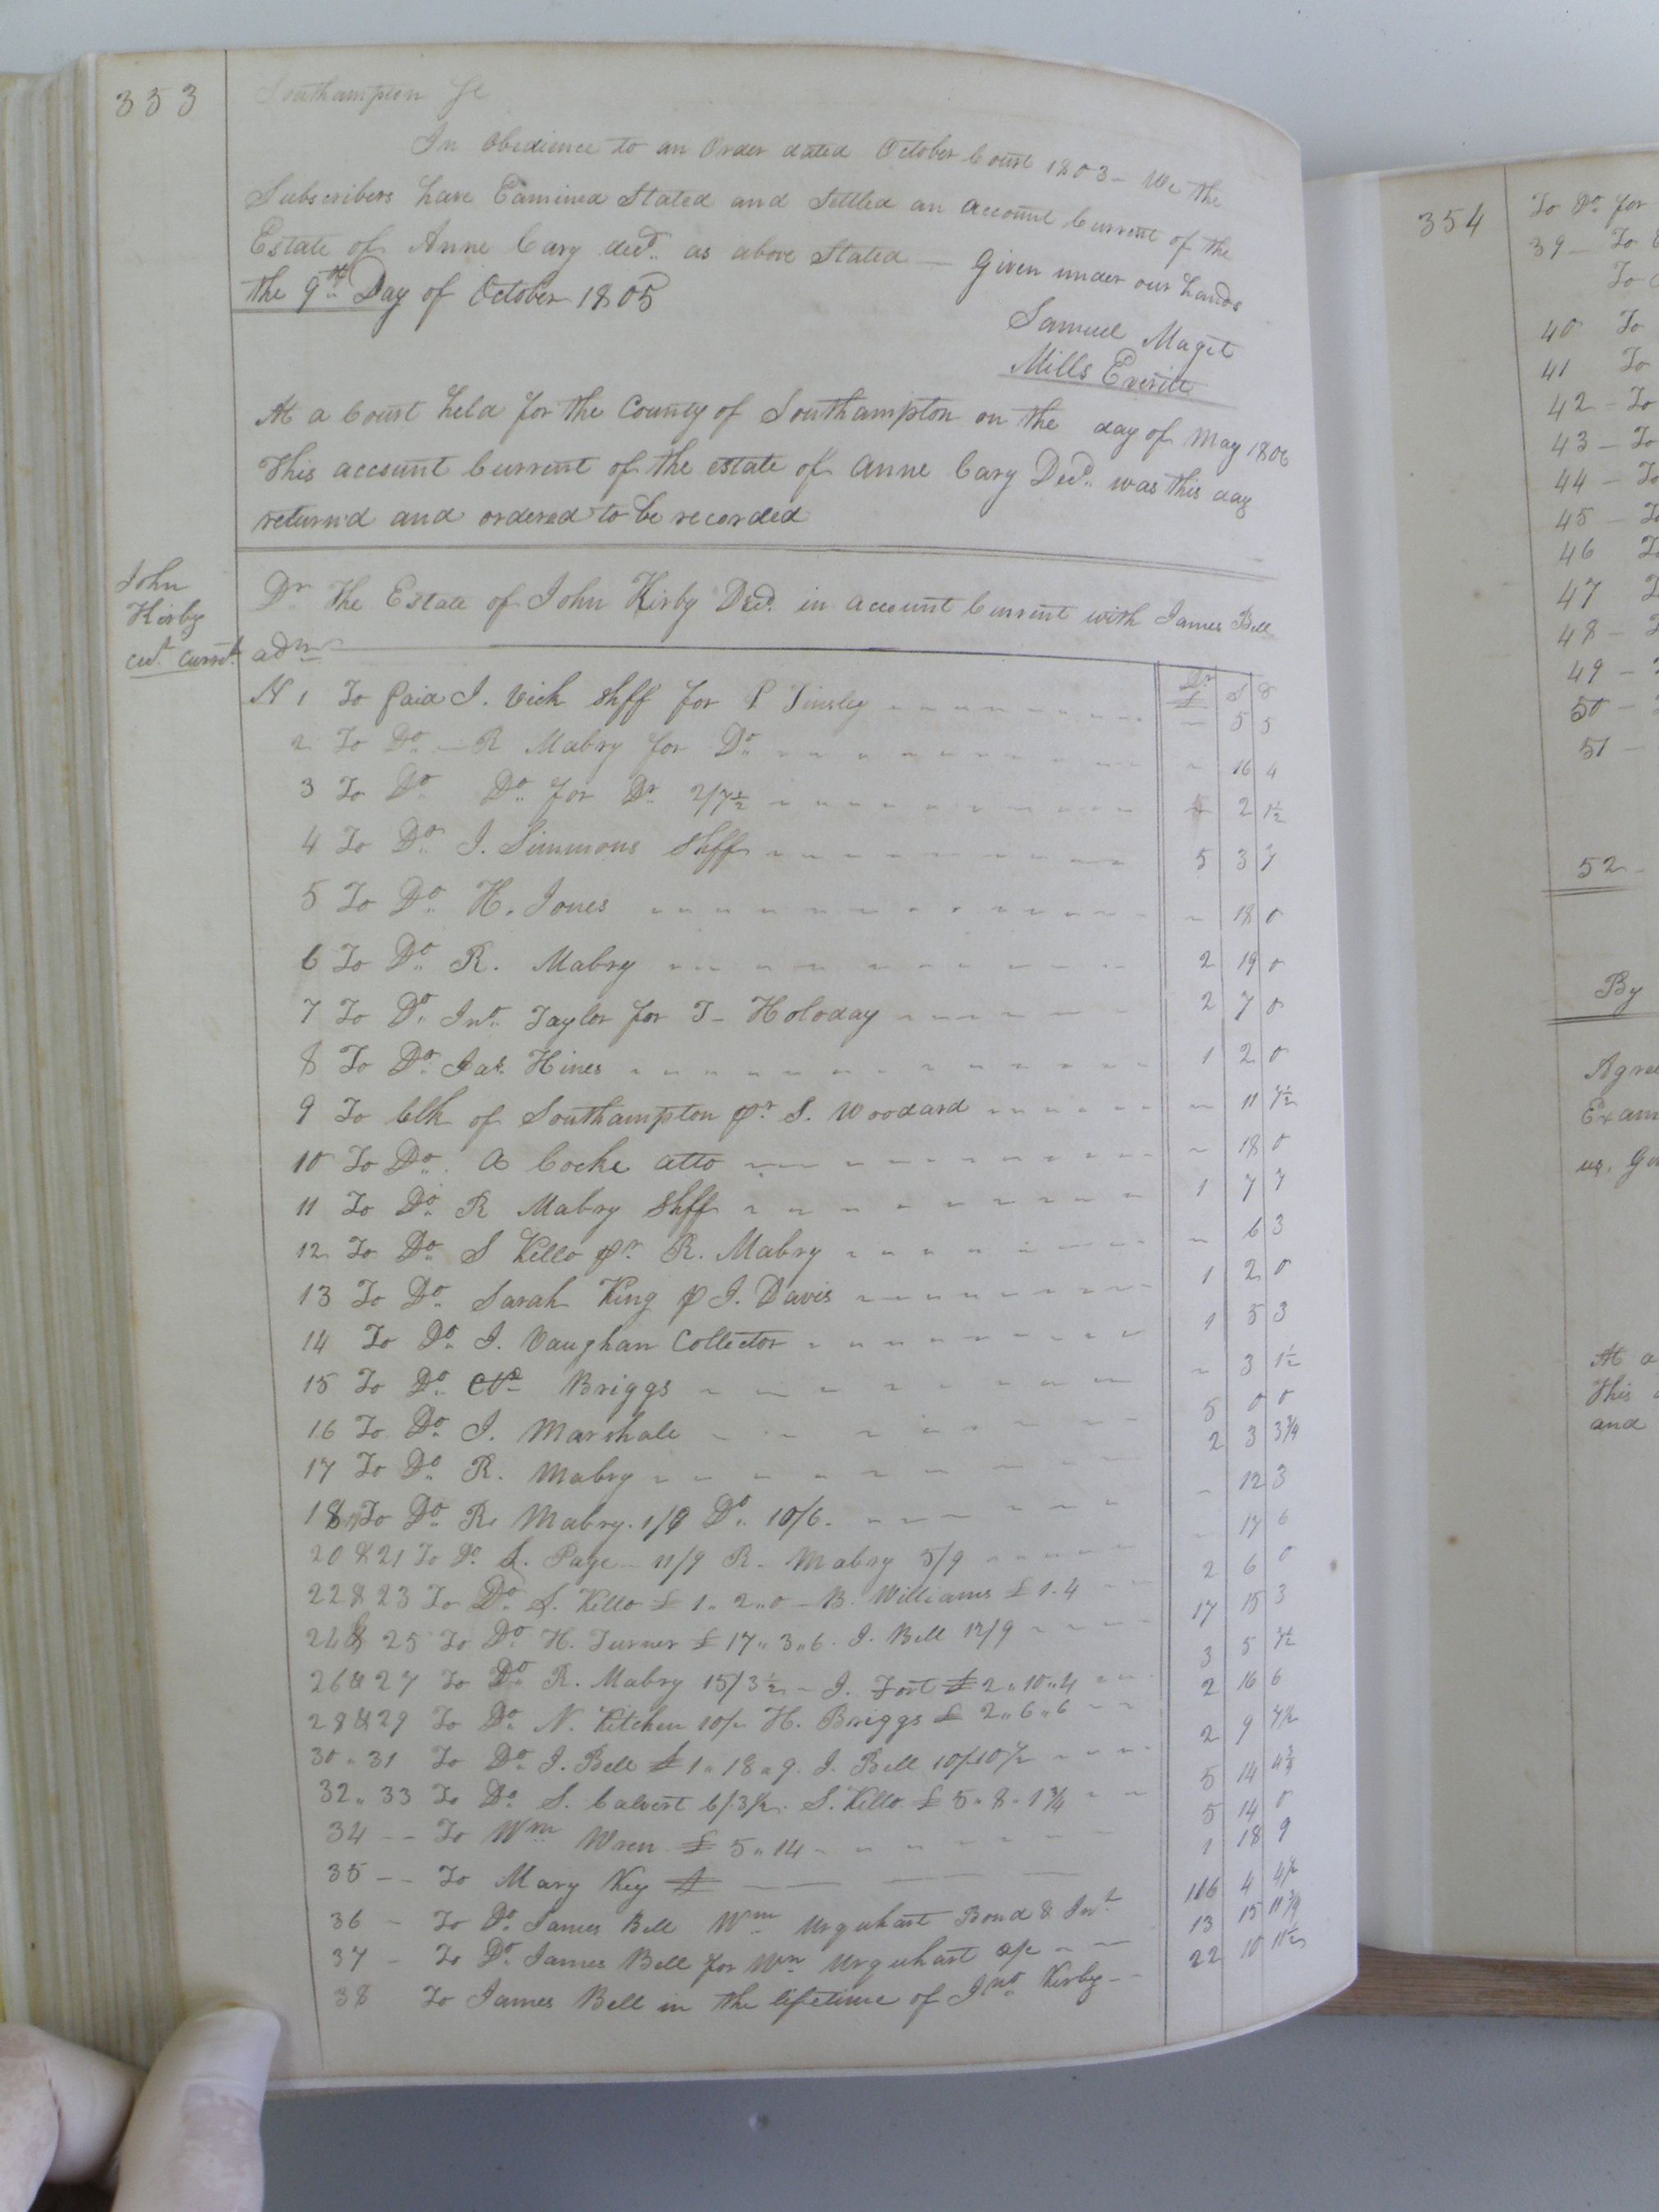 353
Southampton Sc
In Obedience to an Order dated October Court 1803 - We the
Subscribers have Examined Stated and Settled an Account Current of the
Estate of Anne Cary decd. as above Stated — Given under our hands
the 9th Day of October 1805
Samuel Maget
Mills Everitt
At a Court held for the County of Southampton on the day of May 1806
This account Current of the estate of Anne Cary Decd. was this day
return'd and ordered to be recorded
John
Kirby
acct. currt.
Dr The Estate of John Kirby Decd. in account Current with James Bell
admr
Dr £ S d
N 1 To paid J. Vick Shff for P Tinsley - 5 5
2 To Do - R Mabry for Do - 16 4
3 To Do Do for Dr 2/7½ - 2 1½
4 To Do J. Simmons Shff 5 3 7
5 To Do H. Jones - 18 0
6 To Do R. Mabry 2 19 0
7 To Do Jno. Taylor for T- Holoday 2 7 0
8 To Do Jas. Hines 1 2 0
9 To Clk of Southampton pr. S. Woodard - 11 7½
10 To Do. A Cocke atto - 18 0
11 To Do R Mabry Shff 1 7 7
12 To Do S Kello pr. R. Mabry - 6 3
13 To Do Sarah King p J. Davis 1 2 0
14 To Do J. Vaughan Collector 1 5 3
15 To Do Briggs - 3 1½
16 To Do J. Marshall 5 0 0
17 To Do R. Mabry 2 3 3¾
18 To Do R. Mabry. 1/9 Do. 10/6 - 12 3
20 & 21 To Do L. Page - 11/9 R. Mabry 5/9 - 17 6
22 & 23 To Do S. Kello £ 1.. 2..0 - B. Williams £ 1.4 2 6 0
24 & 25 To Do H. Turner £ 17.. 3..6. J. Bell 12/9 17 15 3
26 & 27 To Do R. Mabry 15/3½ - J. Fort £ 2..10..4 3 5 7½
28 & 29 To Do N. Kitchen 10/- H. Briggs £ 2..6..6 2 16 6
30 .. 31 To Do J. Bell £ 1..18..9. J. Bell 10/10½ 2 9 7½
32 .. 33 To Do S. Calvert 6/3½. S. Kello £ 5..8..1¾ 5 14 4¾
34 -- To Wm Wren £ 5..14 5 14 0
35 -- To Mary Key £ 1 18 9
36 - To Do James Bell Wm Urquhart Bond & Int 116 4 4½
37 - To Do James Bell for Wm Urquhart a/c 13 15 11¾
38 To James Bell in the lifetime of Jno Kirby 22 10 11½
354
To Do for
39 - To
To
40 To
41 To
42 - To
43 - To
44 - To
45 - To
46 To
47
48 -
49 -
50 -
51 -
52 -
By
Agree
Exam
us. Gi
At a
This
and